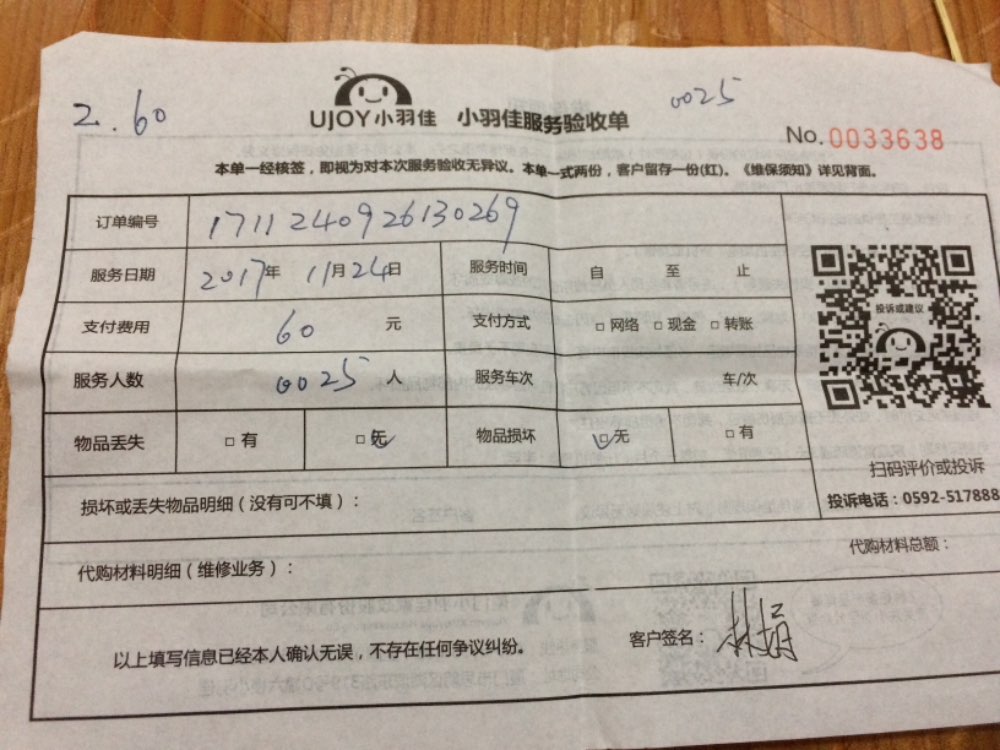 2.60
0025
UJOY小羽佳 小羽佳服务验收单
No.0033638
本单一经核签，即视为对本次服务验收无异议。本单一式两份，客户留存一份(红)。《维保须知》详见背面。
订单编号 1711240926130269
服务日期 2017年 11月24日 服务时间 自 至 止
支付费用 60 元 支付方式 □网络 □现金 □转账
服务人数 0025 人 服务车次 车/次
物品丢失 □有 □无 物品损坏 □无 □有
投诉或建议
扫码评价或投诉
投诉电话：0592-517888
损坏或丢失物品明细（没有可不填）：
代购材料明细（维修业务）：
代购材料总额：
以上填写信息已经本人确认无误，不存在任何争议纠纷。
客户签名：